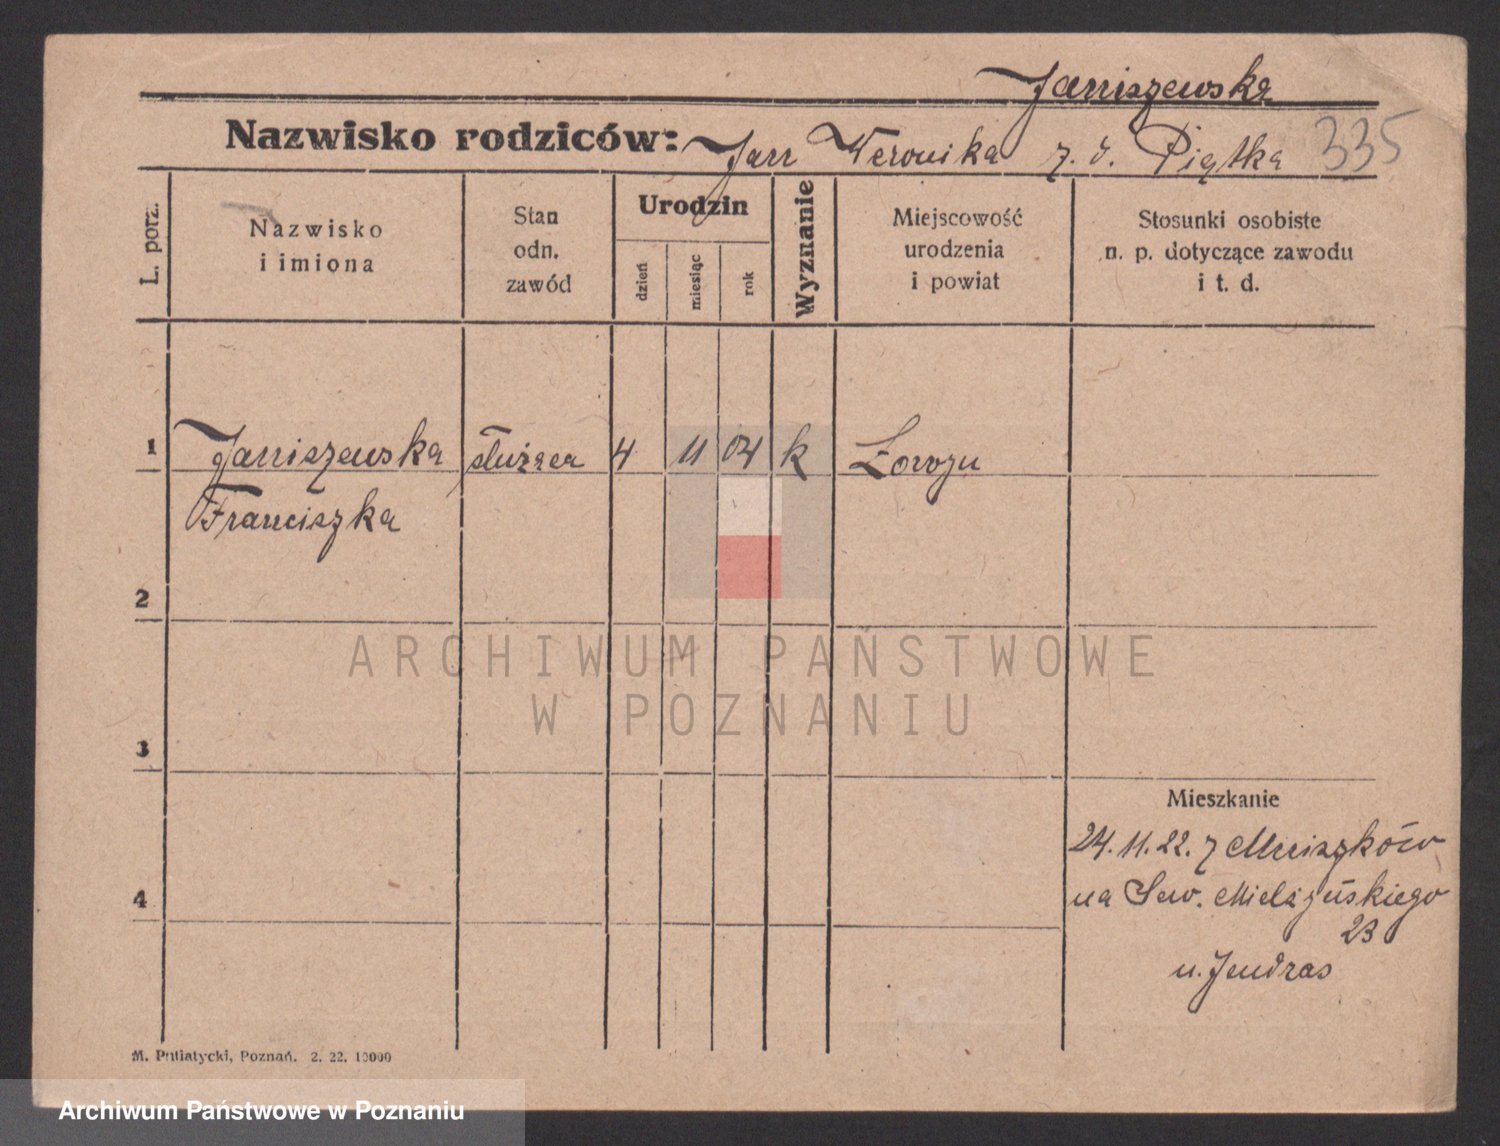 Janiszewska
Nazwisko rodziców: Jan Weronika z. d. Piątka 335
L. porz.
Nazwisko
i imiona
Stan
odn.
zawód
Urodzin
dzień
miesiąc
rok
Wyznanie
Miejscowość
urodzenia
i powiat
Stosunki osobiste
n. p. dotyczące zawodu
i t. d.
1 Janiszewska służąca 4 11 04 k
Franciszka
2
ARCHIWUM PAŃSTWOWE
W POZNANIU
3
Mieszkanie
24. 11. 22. z
4
na Sew. Mielżyńskiego
23
u. Jendras
M. Putiatycki, Poznań. 2. 22. 10000
Archiwum Państwowe w Poznaniu